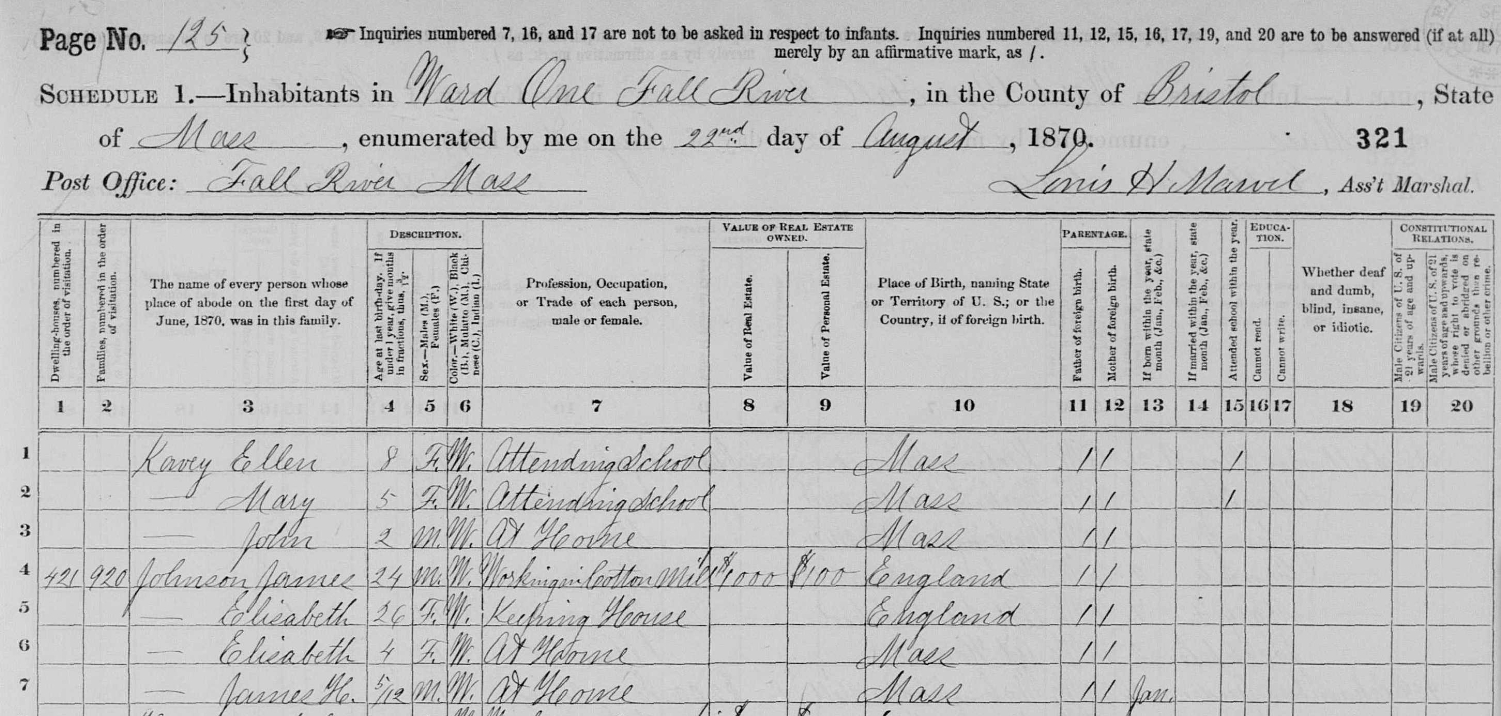 Page No. 125 } ☞ Inquiries numbered 7, 16, and 17 are not to be asked in respect to infants. Inquiries numbered 11, 12, 15, 16, 17, 19, and 20 are to be answered (if at all)
merely by an affirmative mark, as /.
SCHEDULE 1.—Inhabitants in Ward One Fall River, in the County of Bristol, State
of Mass, enumerated by me on the 22nd day of August, 1870. 321
Post Office: Fall River Mass Louis H Marvel, Ass't Marshal.
Dwelling-houses, numbered in the order of visitation.
Families, numbered in the order of visitation.
The name of every person whose place of abode on the first day of June, 1870, was in this family.
DESCRIPTION.
Age at last birth-day. If under 1 year, give months in fractions, thus, 3/12.
Sex.—Males (M.), Females (F.)
Color.—White (W.), Black (B.), Mulatto (M.), Chinese (C.), Indian (I.)
Profession, Occupation, or Trade of each person, male or female.
VALUE OF REAL ESTATE OWNED.
Value of Real Estate.
Value of Personal Estate.
Place of Birth, naming State or Territory of U. S.; or the Country, if of foreign birth.
PARENTAGE.
Father of foreign birth.
Mother of foreign birth.
If born within the year, state month (Jan., Feb., &c.)
If married within the year, state month (Jan., Feb., &c.)
Attended school within the year.
EDUCATION.
Cannot read.
Cannot write.
Whether deaf and dumb, blind, insane, or idiotic.
CONSTITUTIONAL RELATIONS.
Male Citizens of U. S. of 21 years of age and upwards.
Male Citizens of U. S. of 21 years of age and upwards, whose right to vote is denied or abridged on other grounds than rebellion or other crime.
1 2 3 4 5 6 7 8 9 10 11 12 13 14 15 16 17 18 19 20
1 Kavey Ellen 8 F. W. Attending School Mass / / /
2 — Mary 5 F. W. Attending School Mass / / /
3 — John 2 M. W. At Home Mass / /
4 421 920 Johnson James 24 M. W. Working in Cotton Mill $1000 $100 England / /
5 — Elisabeth 26 F. W. Keeping House England / /
6 — Elisabeth 4 F. W. At Home Mass / /
7 — James H. 5/12 M. W. At Home Mass / / Jan.